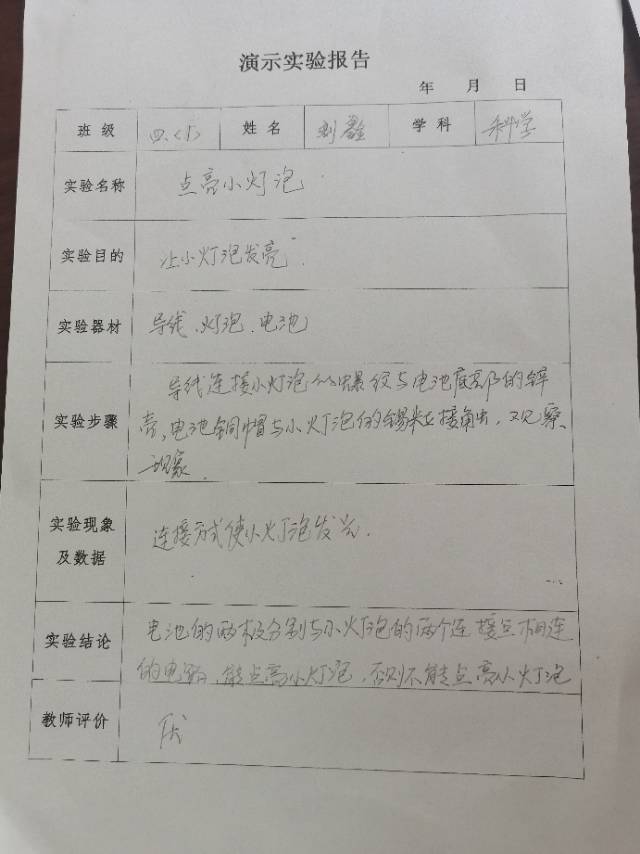 演示实验报告
年 月 日
班级 四.(1) 姓名 刘 学科 科学
实验名称 点亮小灯泡
实验目的 让小灯泡发亮.
实验器材 导线、灯泡、电池
导线连接小灯泡的螺纹与电池底部的锌
实验步骤 壳,电池铜帽与小灯泡的锡粒接触,观察
现象.
实验现象及数据 连接方式使小灯泡发光.
实验结论 电池的两极分别与小灯泡的两个连接点相连
的电路,能点亮小灯泡,否则不能点亮小灯泡
教师评价